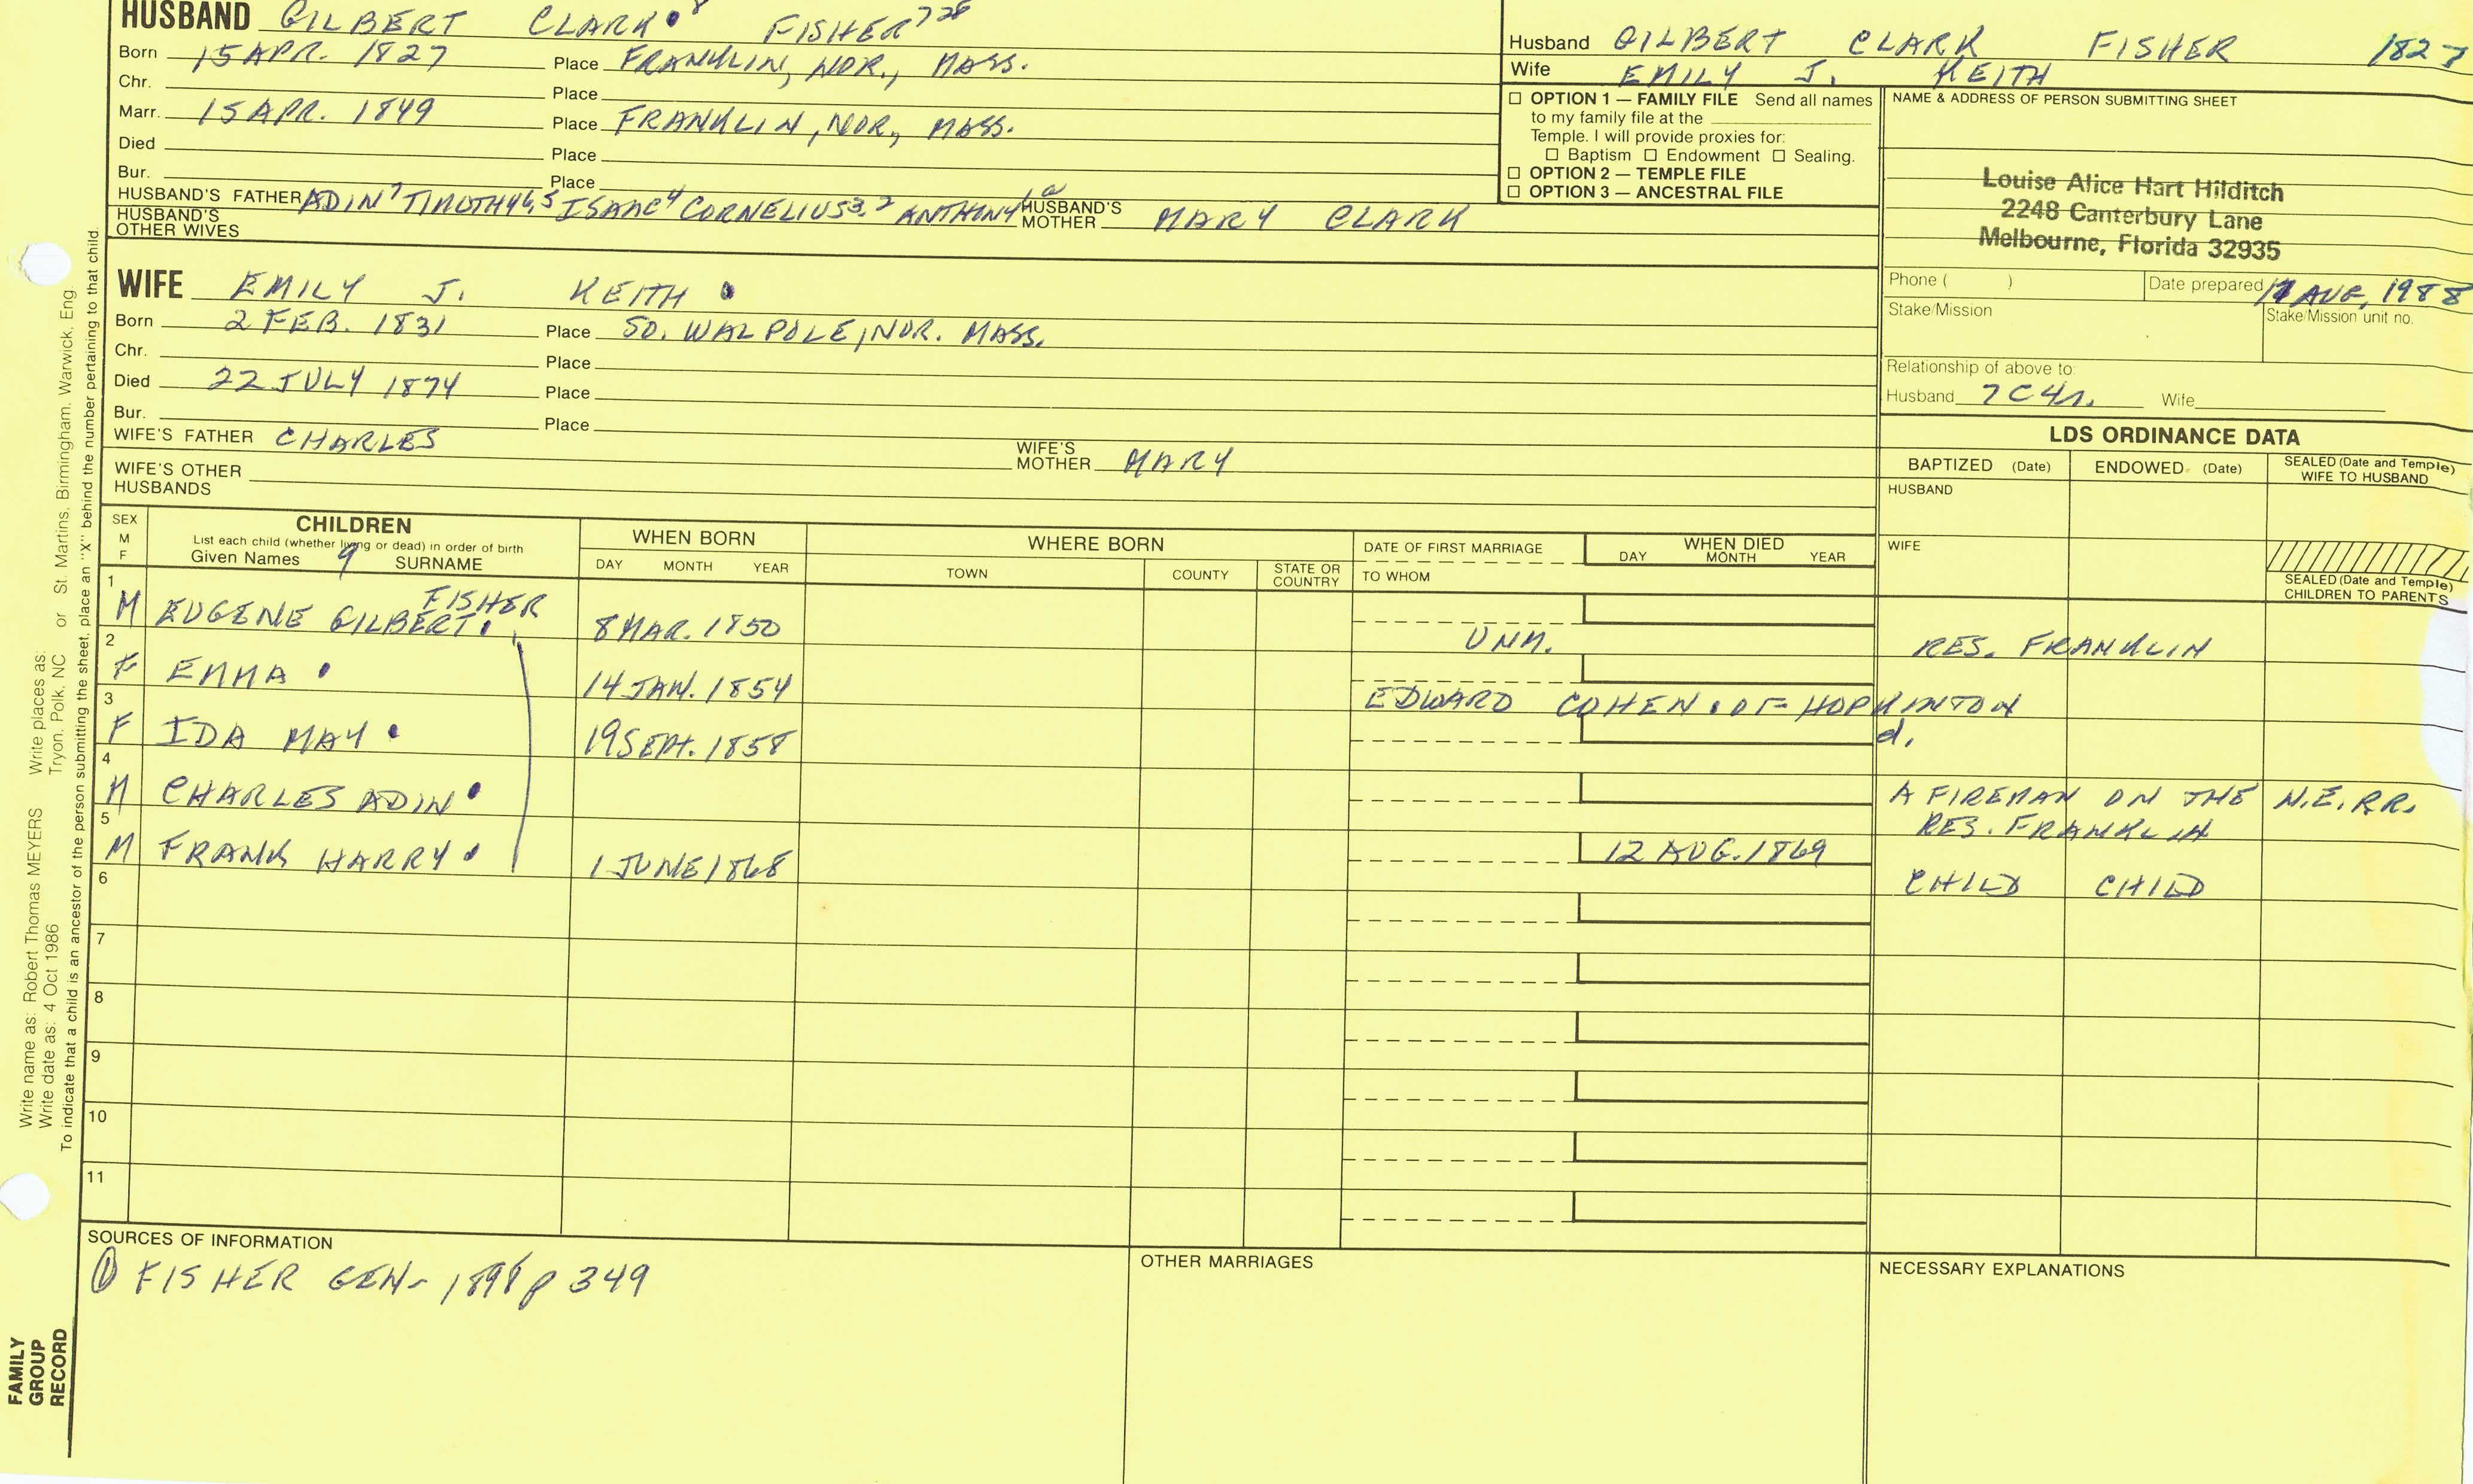 HUSBAND GILBERT CLARK 8 FISHER 728
Born 15 APR. 1827 Place FRANKLIN, NOR., MASS.
Chr. Place
Marr. 15 APR. 1849 Place FRANKLIN, NOR., MASS.
Died Place
Bur. Place
HUSBAND'S FATHER ADIN 7 TIMOTHY 6,5 ISAAC 4 CORNELIUS 3,2 ANTHONY 1a HUSBAND'S MOTHER MARY CLARK
HUSBAND'S OTHER WIVES
WIFE EMILY J. KEITH
Born 2 FEB. 1831 Place SO. WALPOLE, NOR. MASS.
Chr. Place
Died 22 JULY 1874 Place
Bur. Place
WIFE'S FATHER CHARLES WIFE'S MOTHER MARY
WIFE'S OTHER HUSBANDS
Husband GILBERT CLARK FISHER 1827
Wife EMILY J. KEITH
☐ OPTION 1 — FAMILY FILE Send all names
to my family file at the
Temple. I will provide proxies for:
☐ Baptism ☐ Endowment ☐ Sealing.
☐ OPTION 2 — TEMPLE FILE
☐ OPTION 3 — ANCESTRAL FILE
NAME & ADDRESS OF PERSON SUBMITTING SHEET
Louise Alice Hart Hilditch
2248 Canterbury Lane
Melbourne, Florida 32935
Phone ( ) Date prepared AUG, 1988
Stake/Mission Stake/Mission unit no.
Relationship of above to:
Husband 7C4r. Wife
LDS ORDINANCE DATA
BAPTIZED (Date) ENDOWED (Date) SEALED (Date and Temple) WIFE TO HUSBAND
HUSBAND
WIFE
SEALED (Date and Temple)
CHILDREN TO PARENTS
SEX M F
CHILDREN
List each child (whether living or dead) in order of birth
Given Names 9 SURNAME
WHEN BORN
DAY MONTH YEAR
WHERE BORN
TOWN COUNTY STATE OR COUNTRY
DATE OF FIRST MARRIAGE
TO WHOM
WHEN DIED
DAY MONTH YEAR
1 M EUGENE GILBERT FISHER 8 MAR. 1850 UNM. RES. FRANKLIN
2 F EMMA 14 JAN. 1854 EDWARD COHEN OF HOPKINTON
3 F IDA MAY 19 SEPT. 1858 d.
4 M CHARLES ADIN A FIREMAN ON THE N.E. RR.
RES. FRANKLIN
5 M FRANK HARRY 1 JUNE 1868 12 AUG. 1869 CHILD CHILD
6
7
8
9
10
11
SOURCES OF INFORMATION
① FISHER GEN- 1898 p 349
OTHER MARRIAGES
NECESSARY EXPLANATIONS
Write name as: Robert Thomas MEYERS Write places as: Tryon, Polk, NC or St. Martins, Birmingham, Warwick, Eng.
Write date as: 4 Oct 1986
To indicate that a child is an ancestor of the person submitting the sheet, place an "X" behind the number pertaining to that child.
FAMILY
GROUP
RECORD